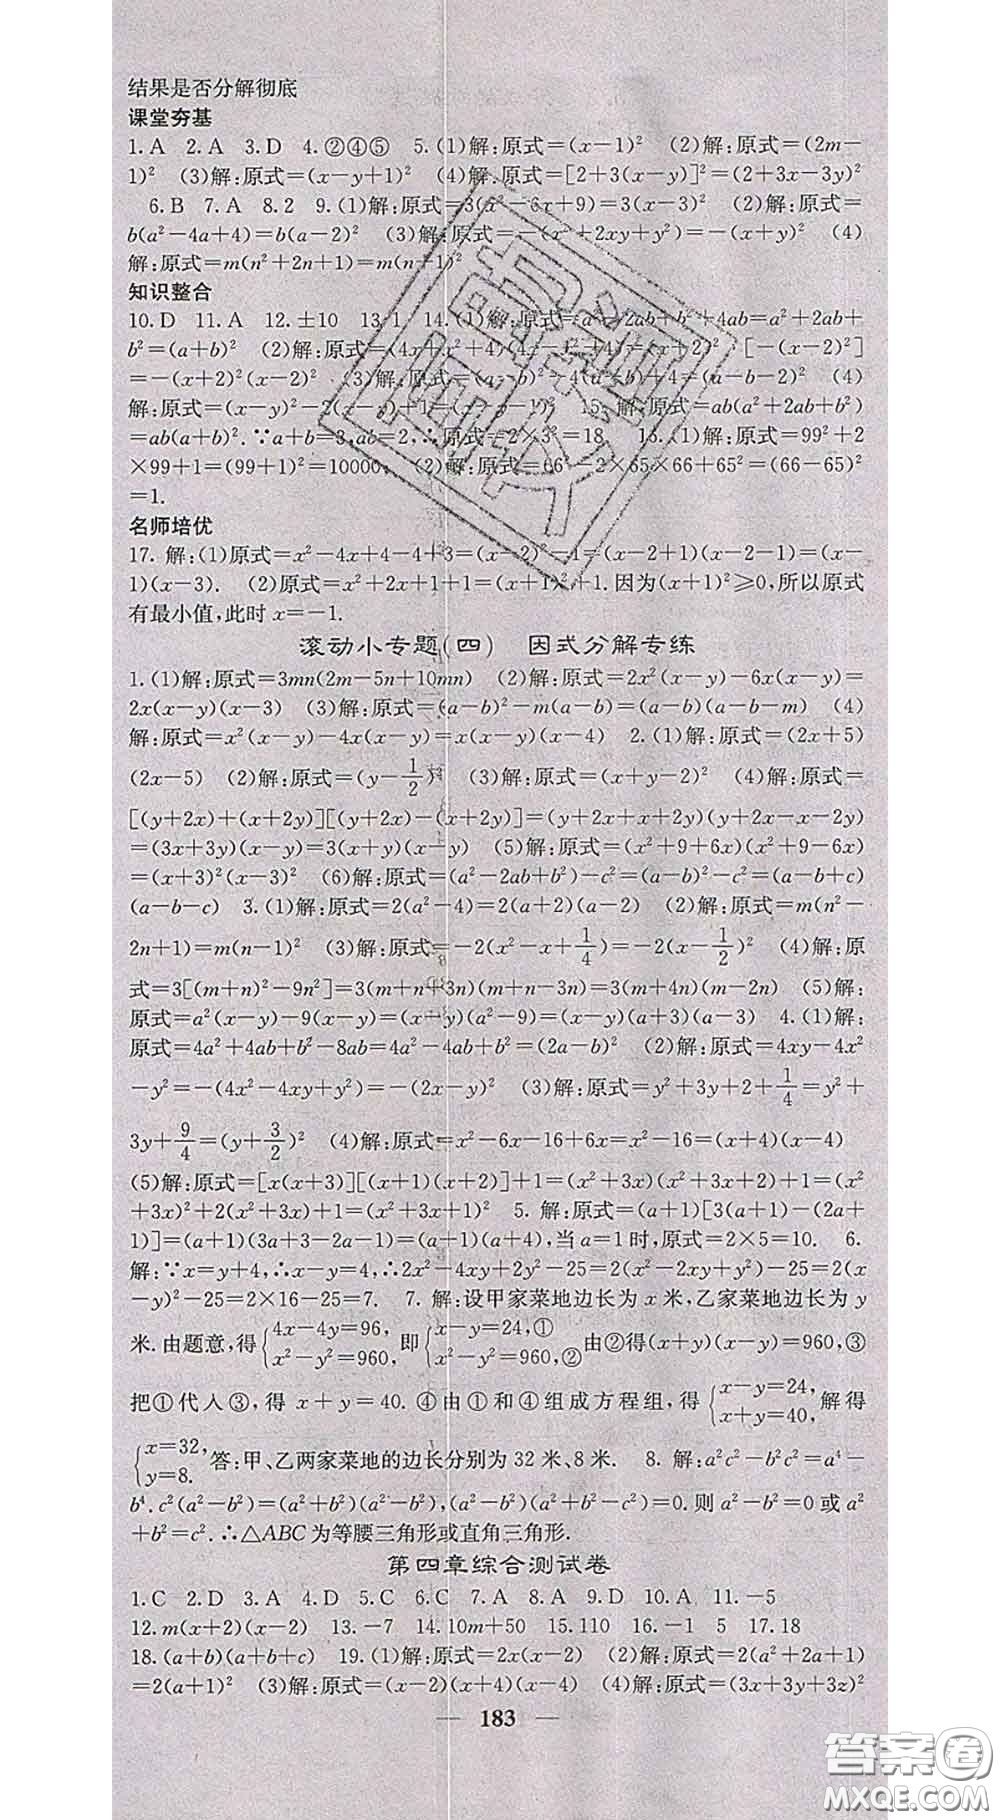 结果是否分解彻底
课堂夯基
1. A 2. A 3. D 4. ②④⑤ 5. (1)解:原式=(x-1)² (2)解:原式=(2m-
1)² (3)解:原式=(x-y+1)² (4)解:原式=[2+3(x-y)]²=(2+3x-3y)²
6. B 7. A 8. 2 9. (1)解:原式=3(x²-6x+9)=3(x-3)² (2)解:原式=
b(a²-4a+4)=b(a-2)² (3)解:原式=-(x²+2xy+y²)=-(x+y)² (4)
解:原式=m(n²+2n+1)=m(n+1)²
知识整合
10. D 11. A 12. ±10 13. 1 14. (1)解:原式=a²-2ab+b²+4ab=a²+2ab+
b²=(a+b)² (2)解:原式=(4x+x²+4)(4x-x²-4)=(x+2)²·[-(x-2)²]
=-(x+2)²(x-2)² (3)解:原式=(a-b)²-4(a-b)+4=(a-b-2)² (4)
解:原式=(x-y)²-2(x-y)+1=(x-y-1)² 15. 解:原式=ab(a²+2ab+b²)
=ab(a+b)². ∵a+b=3,ab=2,∴原式=2×3²=18 16. (1)解:原式=99²+2
×99+1=(99+1)²=10000; (2)解:原式=66²-2×65×66+65²=(66-65)²
=1.
名师培优
17. 解:(1)原式=x²-4x+4-4+3=(x-2)²-1=(x-2+1)(x-2-1)=(x-
1)(x-3). (2)原式=x²+2x+1+1=(x+1)²+1. 因为(x+1)²≥0,所以原式
有最小值,此时 x=-1.
滚动小专题(四) 因式分解专练
1. (1)解:原式=3mn(2m-5n+10mn) (2)解:原式=2x²(x-y)-6x(x-y)=
2x(x-y)(x-3) (3)解:原式=(a-b)²-m(a-b)=(a-b)(a-b-m) (4)
解:原式=x²(x-y)-4x(x-y)=x(x-y)(x-4) 2. (1)解:原式=(2x+5)
(2x-5) (2)解:原式=(y-1/2)² (3)解:原式=(x+y-2)² (4)解:原式=
[(y+2x)+(x+2y)][(y+2x)-(x+2y)]=(y+2x+x+2y)(y+2x-x-2y)
=(3x+3y)(x-y)=3(x+y)(x-y) (5)解:原式=(x²+9+6x)(x²+9-6x)
=(x+3)²(x-3)² (6)解:原式=(a²-2ab+b²)-c²=(a-b)²-c²=(a-b+c)
(a-b-c) 3. (1)解:原式=2(a²-4)=2(a+2)(a-2) (2)解:原式=m(n²-
2n+1)=m(n-1)² (3)解:原式=-2(x²-x+1/4)=-2(x-1/2)² (4)解:原
式=3[(m+n)²-9n²]=3(m+n+3n)(m+n-3n)=3(m+4n)(m-2n) (5)解:
原式=a²(x-y)-9(x-y)=(x-y)(a²-9)=(x-y)(a+3)(a-3) 4. (1)解:
原式=4a²+4ab+b²-8ab=4a²-4ab+b²=(2a-b)² (2)解:原式=4xy-4x²
-y²=-(4x²-4xy+y²)=-(2x-y)² (3)解:原式=y²+3y+2+1/4=y²+
3y+9/4=(y+3/2)² (4)解:原式=x²-6x-16+6x=x²-16=(x+4)(x-4)
(5)解:原式=[x(x+3)][(x+1)(x+2)]+1=(x²+3x)(x²+3x+2)+1=(x²
+3x)²+2(x²+3x)+1=(x²+3x+1)² 5. 解:原式=(a+1)[3(a+1)-(2a+
1)]=(a+1)(3a+3-2a-1)=(a+1)(a+4),当 a=1 时,原式=2×5=10. 6.
解:∵x=y+4,∴x-y=4,∴2x²-4xy+2y²-25=2(x²-2xy+y²)-25=2(x
-y)²-25=2×16-25=7. 7. 解:设甲家菜地边长为 x 米,乙家菜地边长为 y
米. 由题意,得{4x-4y=96, x²-y²=960, 即{x-y=24,① x²-y²=960,② 由②得(x+y)(x-y)=960,③
把①代入③,得 x+y=40. ④由①和④组成方程组,得{x-y=24, x+y=40, 解得
{x=32, y=8. 答:甲、乙两家菜地的边长分别为 32 米、8 米. 8. 解:a²c²-b²c²=a⁴-
b⁴. c²(a²-b²)=(a²+b²)(a²-b²),(a²-b²)(a²+b²-c²)=0. 则 a²-b²=0 或 a²
+b²=c². ∴△ABC 为等腰三角形或直角三角形.
第四章综合测试卷
1. C 2. D 3. A 4. D 5. C 6. C 7. A 8. A 9. D 10. A 11. -5
12. m(x+2)(x-2) 13. -7 14. 10m+50 15. 110 16. -1 5 17. 18
18. (a+b)(a+b+c) 19. (1)解:原式=2x(x-2) (2)解:原式=2(a²+2a+1)
=2(a+1)² (3)解:原式=(x-2)(x+4)(x-4) (4)解:原式=(3x+3y+3z)²
— 183 —
答案圈
MXQE.COM